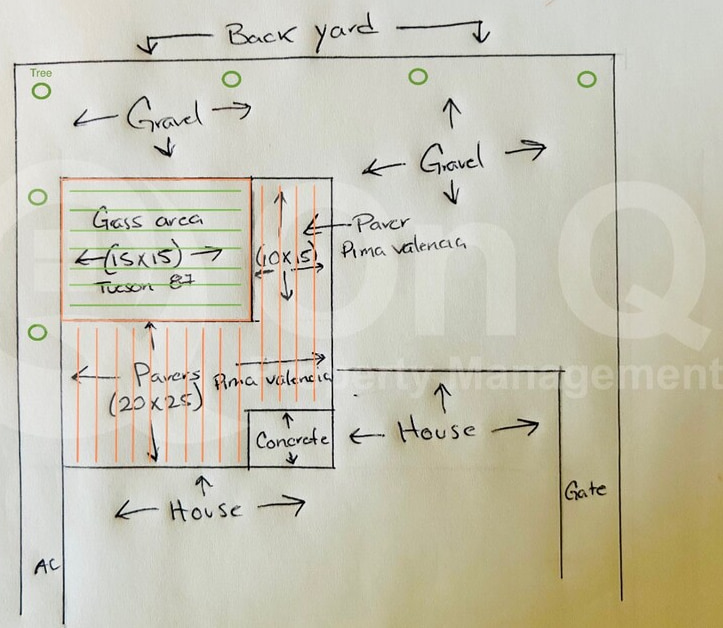 Back yard
Tree
Gravel
Gravel
Gass area
(15x15)
Tucson 87
Paver
Pima valencia
(10x15)
Pavers Pima valencia
(20x25)
Concrete
House
House
Gate
AC
On Q
Property Management